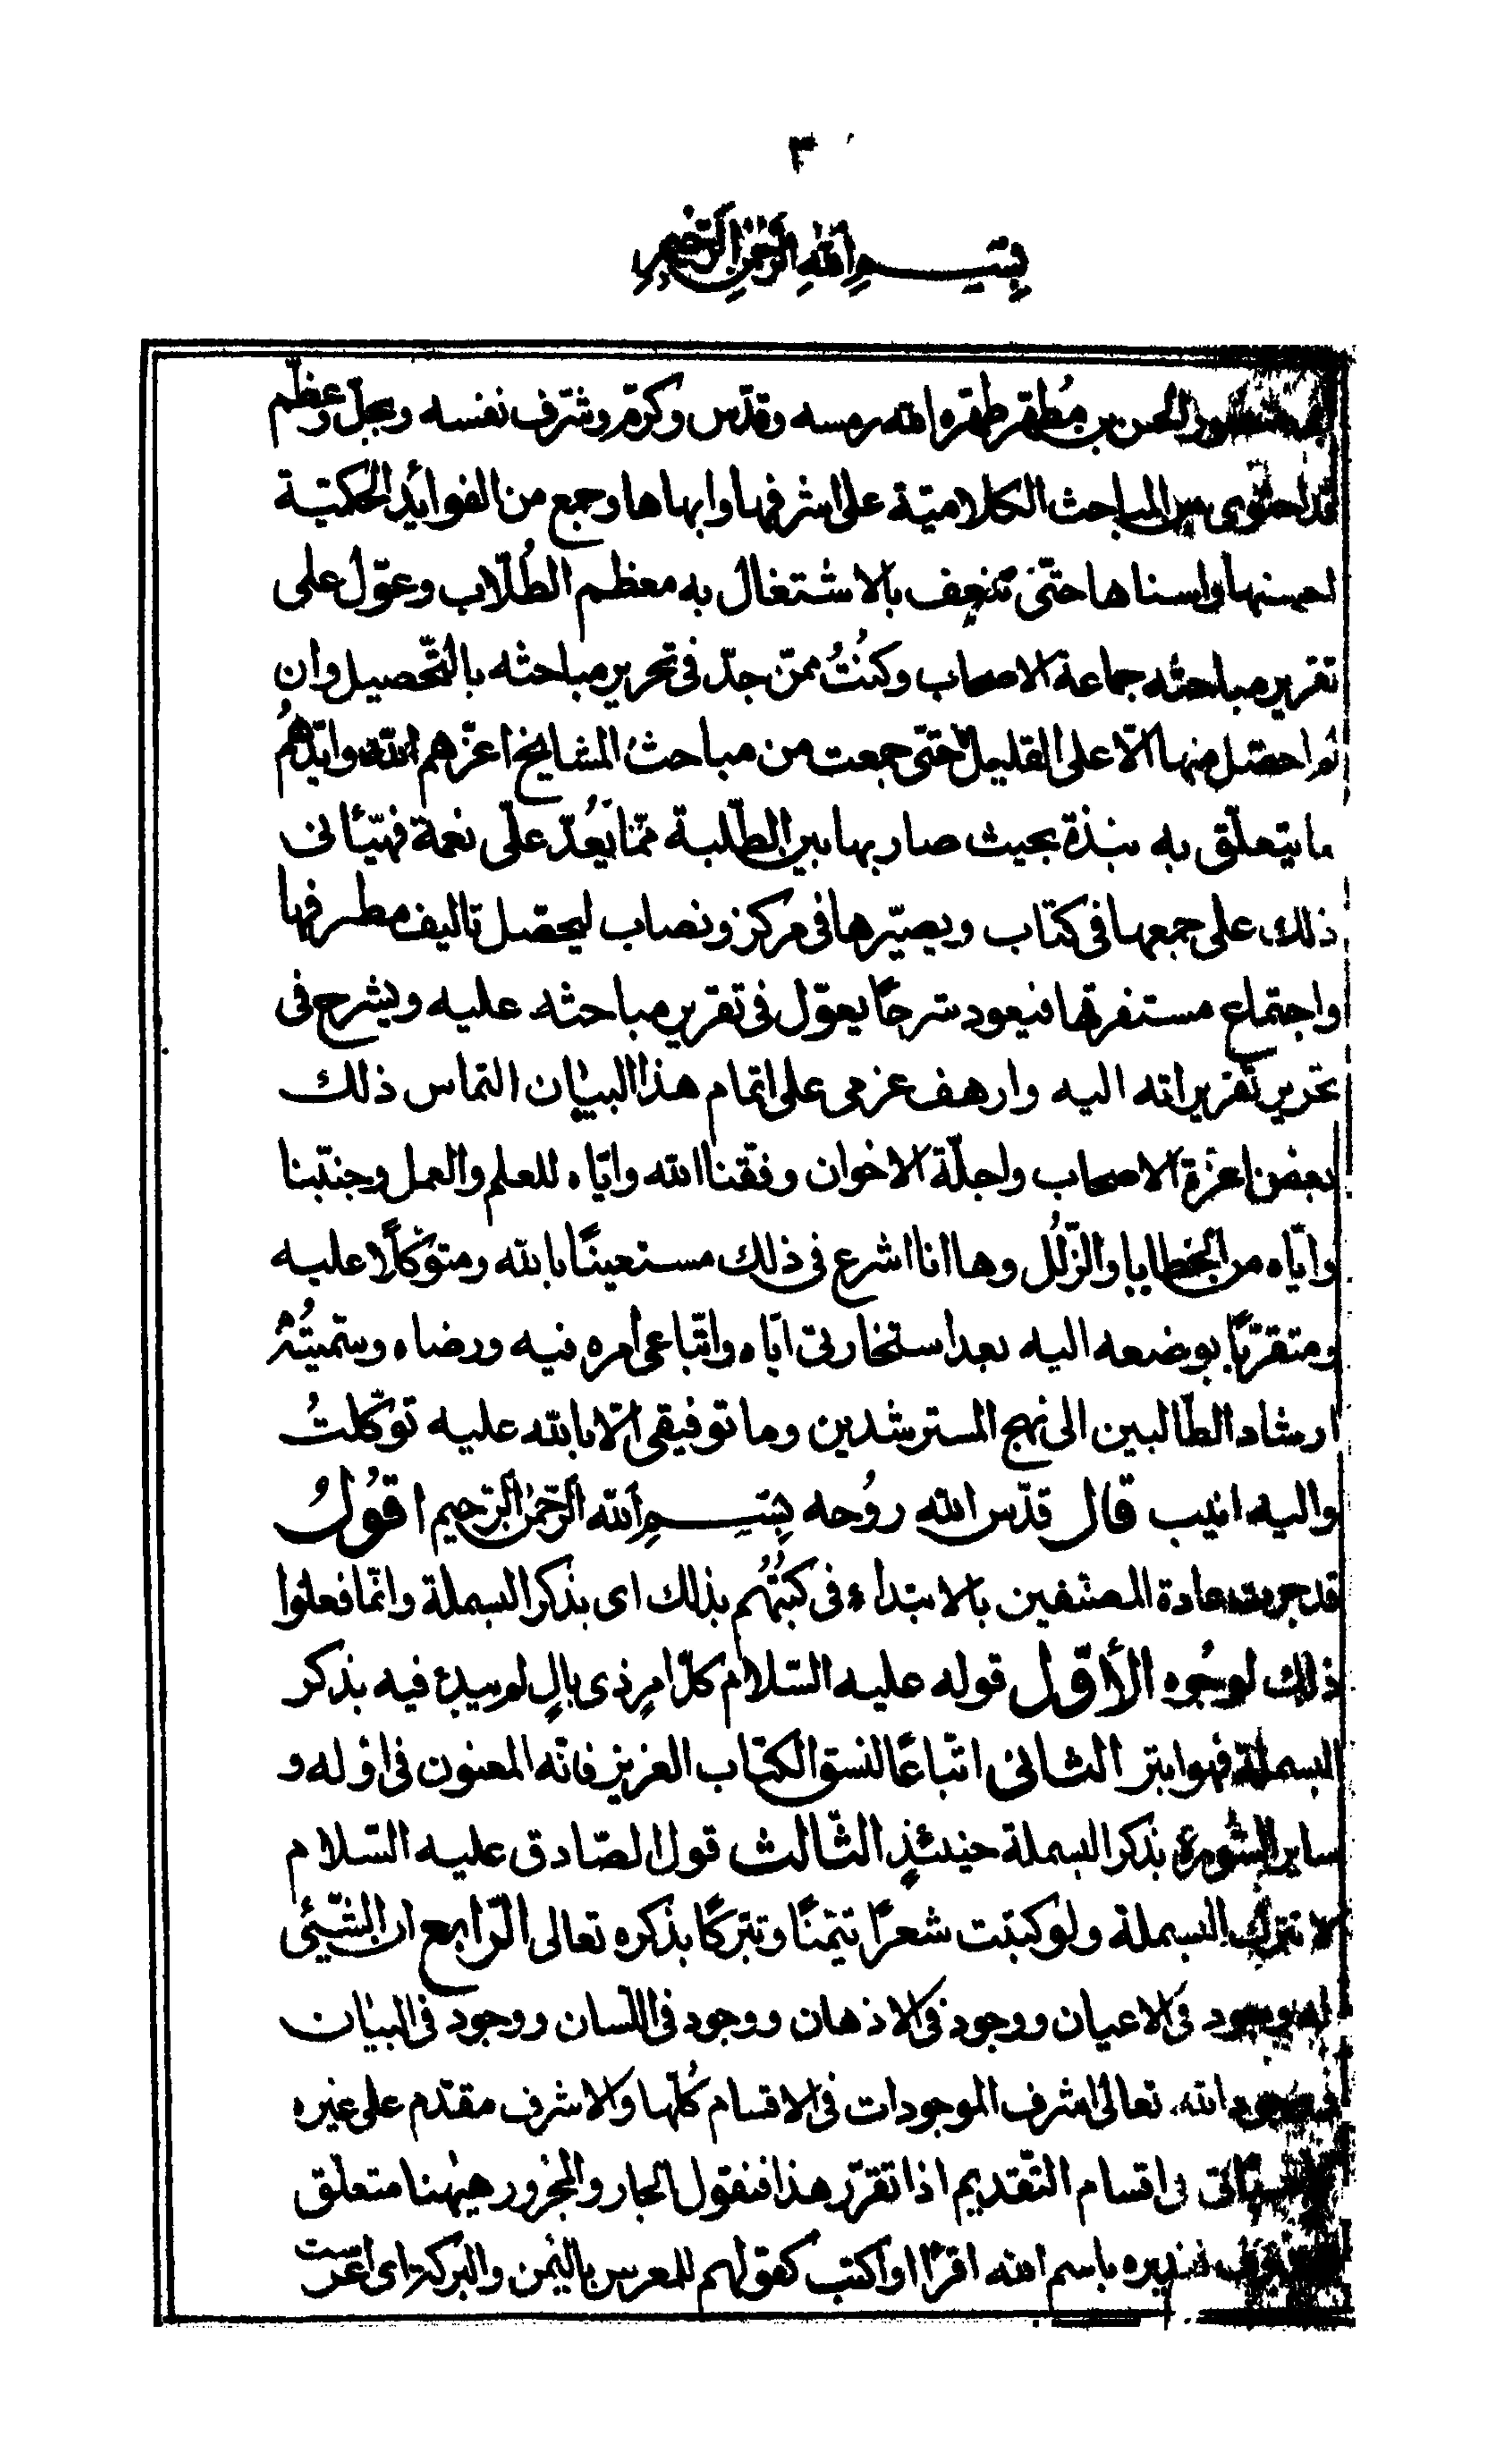 ٣
بسم الله الرحمن الرحيم
الحسن بن مُطهّر طهّره الله رمسه وقدّس وكرّم وشرّف نفسه وبجّل وعظّم
قد احتوى من المباحث الكلاميّة على اشرفها وابهاها وجمع من الفوائد الحكميّة
احسنها واسناها حتّى شغف بالاشتغال به معظم الطُلّاب وعوّل على
تقرير مباحثه جماعة الاصحاب وكنتُ ممّن جدّ في تحرير مباحثه بالتّحصيل وان
لم احصّل منها الّا على القليل حتّى جمعت من مباحث المشايخ اعزّهم الله وايّدهُم
ما يتعلّق به نبذة بحيث صار بها بين الطّلبة ممّا يُعَدّ علىّ نعمة فهيّأنى
ذلك على جمعها فى كتاب ويصيّرها فى مركز ونصاب ليحصّل تاليف مطرفها
واجتماع مستفرقها فيعود شرحًا يعوّل فى تقرير مباحثه عليه ويشرح فى
تحرير تقريراته اليه وارهف عزمى على اتمام هذا البيان التماس ذلك
بعض اعزة الاصحاب واجلّة الاخوان وفّقنا الله وايّاه للعلم والعمل وجنّبنا
وايّاه من الخطايا والزّلل وها انا اشرع فى ذلك مستعينًا بالله ومتوكّلًا عليه
ومتقرّبًا بوضعه اليه بعد استخارتى ايّاه واتّباعى امره فيه ورضاه وسمّيتُهُ
ارشاد الطّالبين الى نهج المسترشدين وما توفيقى الّا بالله عليه توكّلتُ
واليه انيب قال قدّس الله رُوحه بسم الله الرّحمٰن الرّحيم اقُولُ
قد جرت عادة المصنّفين بالابتداء فى كتُبُهم بذلك اى بذكر البسملة وانّما فعلوا
ذلك لوجُوه الأوّل قوله عليه السّلام كلّ امرٍ ذى بالٍ لم يبدء فيه بذكر
البسملة فهو ابتر الثانى اتّباعًا لنسق الكتاب العزيز فانّه المعنون فى اوّله و
ساير السّورة بذكر البسملة حينئذٍ الثّالث قول الصّادق عليه السّلام
لا تترك البسملة ولو كتبت شعرًا تيمّنًا وتبرّكًا بذكره تعالى الرّابع ان الشّيئى
له وجود فى الاعيان ووجود فى الاذهان ووجود فى اللّسان ووجود فى البيان
الله تعالى اشرف الموجودات فى الاقسام كُلّها والاشرف مقدّم على غيره
فى اقسام التّقديم اذا تقرّر هذا فنقول الجار والمجرور هيٰهنا متعلّق
تقديره باسم الله اقرأ او اكتب كقولهم للمعرس باليُمن والبركة اى اعرست